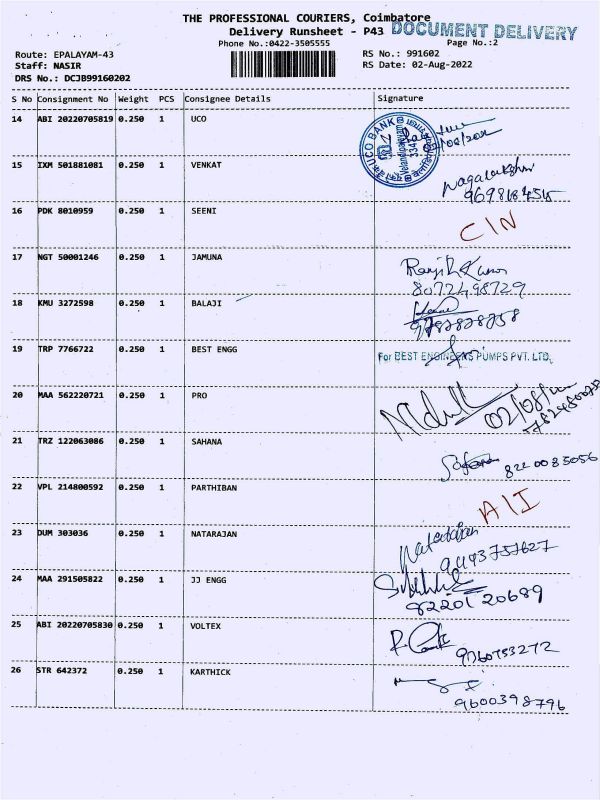 THE PROFESSIONAL COURIERS, Coimbatore
Delivery Runsheet - P43 DOCUMENT DELIVERY
Phone No.:0422-3505555 Page No.:2
Route: EPALAYAM-43 RS No.: 991602
Staff: NASIR RS Date: 02-Aug-2022
DRS No.: DCJB99160202
S No Consignment No Weight PCS Consignee Details Signature
14 ABI 20220705819 0.250 1 UCO
UCO BANK
15 IXM 501881081 0.250 1 VENKAT
16 PDK 8010959 0.250 1 SEENI
C/N
17 NGT 50001246 0.250 1 JAMUNA
8072498729
18 KMU 3272598 0.250 1 BALAJI
19 TRP 7766722 0.250 1 BEST ENGG For BEST ENGINEERS PUMPS PVT. LTD.
20 MAA 562220721 0.250 1 PRO
21 TRZ 122063086 0.250 1 SAHANA
8220083056
22 VPL 214800592 0.250 1 PARTHIBAN
23 DUM 303036 0.250 1 NATARAJAN
Natarajan
24 MAA 291505822 0.250 1 JJ ENGG
8220120689
25 ABI 20220705830 0.250 1 VOLTEX
26 STR 642372 0.250 1 KARTHICK
9600398796